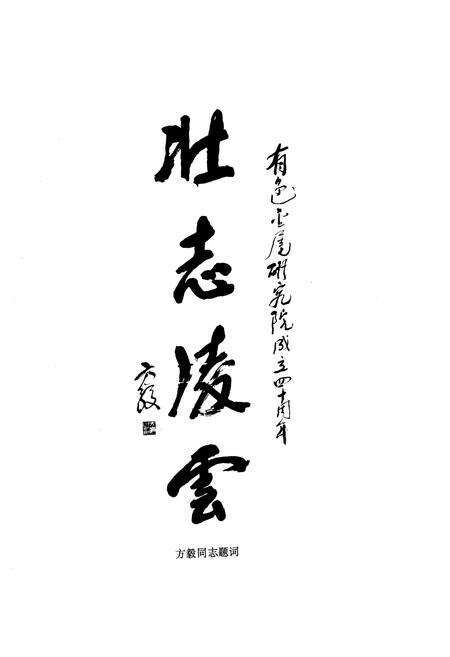 有色金属研究院成立四十周年
壮志陵雲
方毅
方毅同志题词